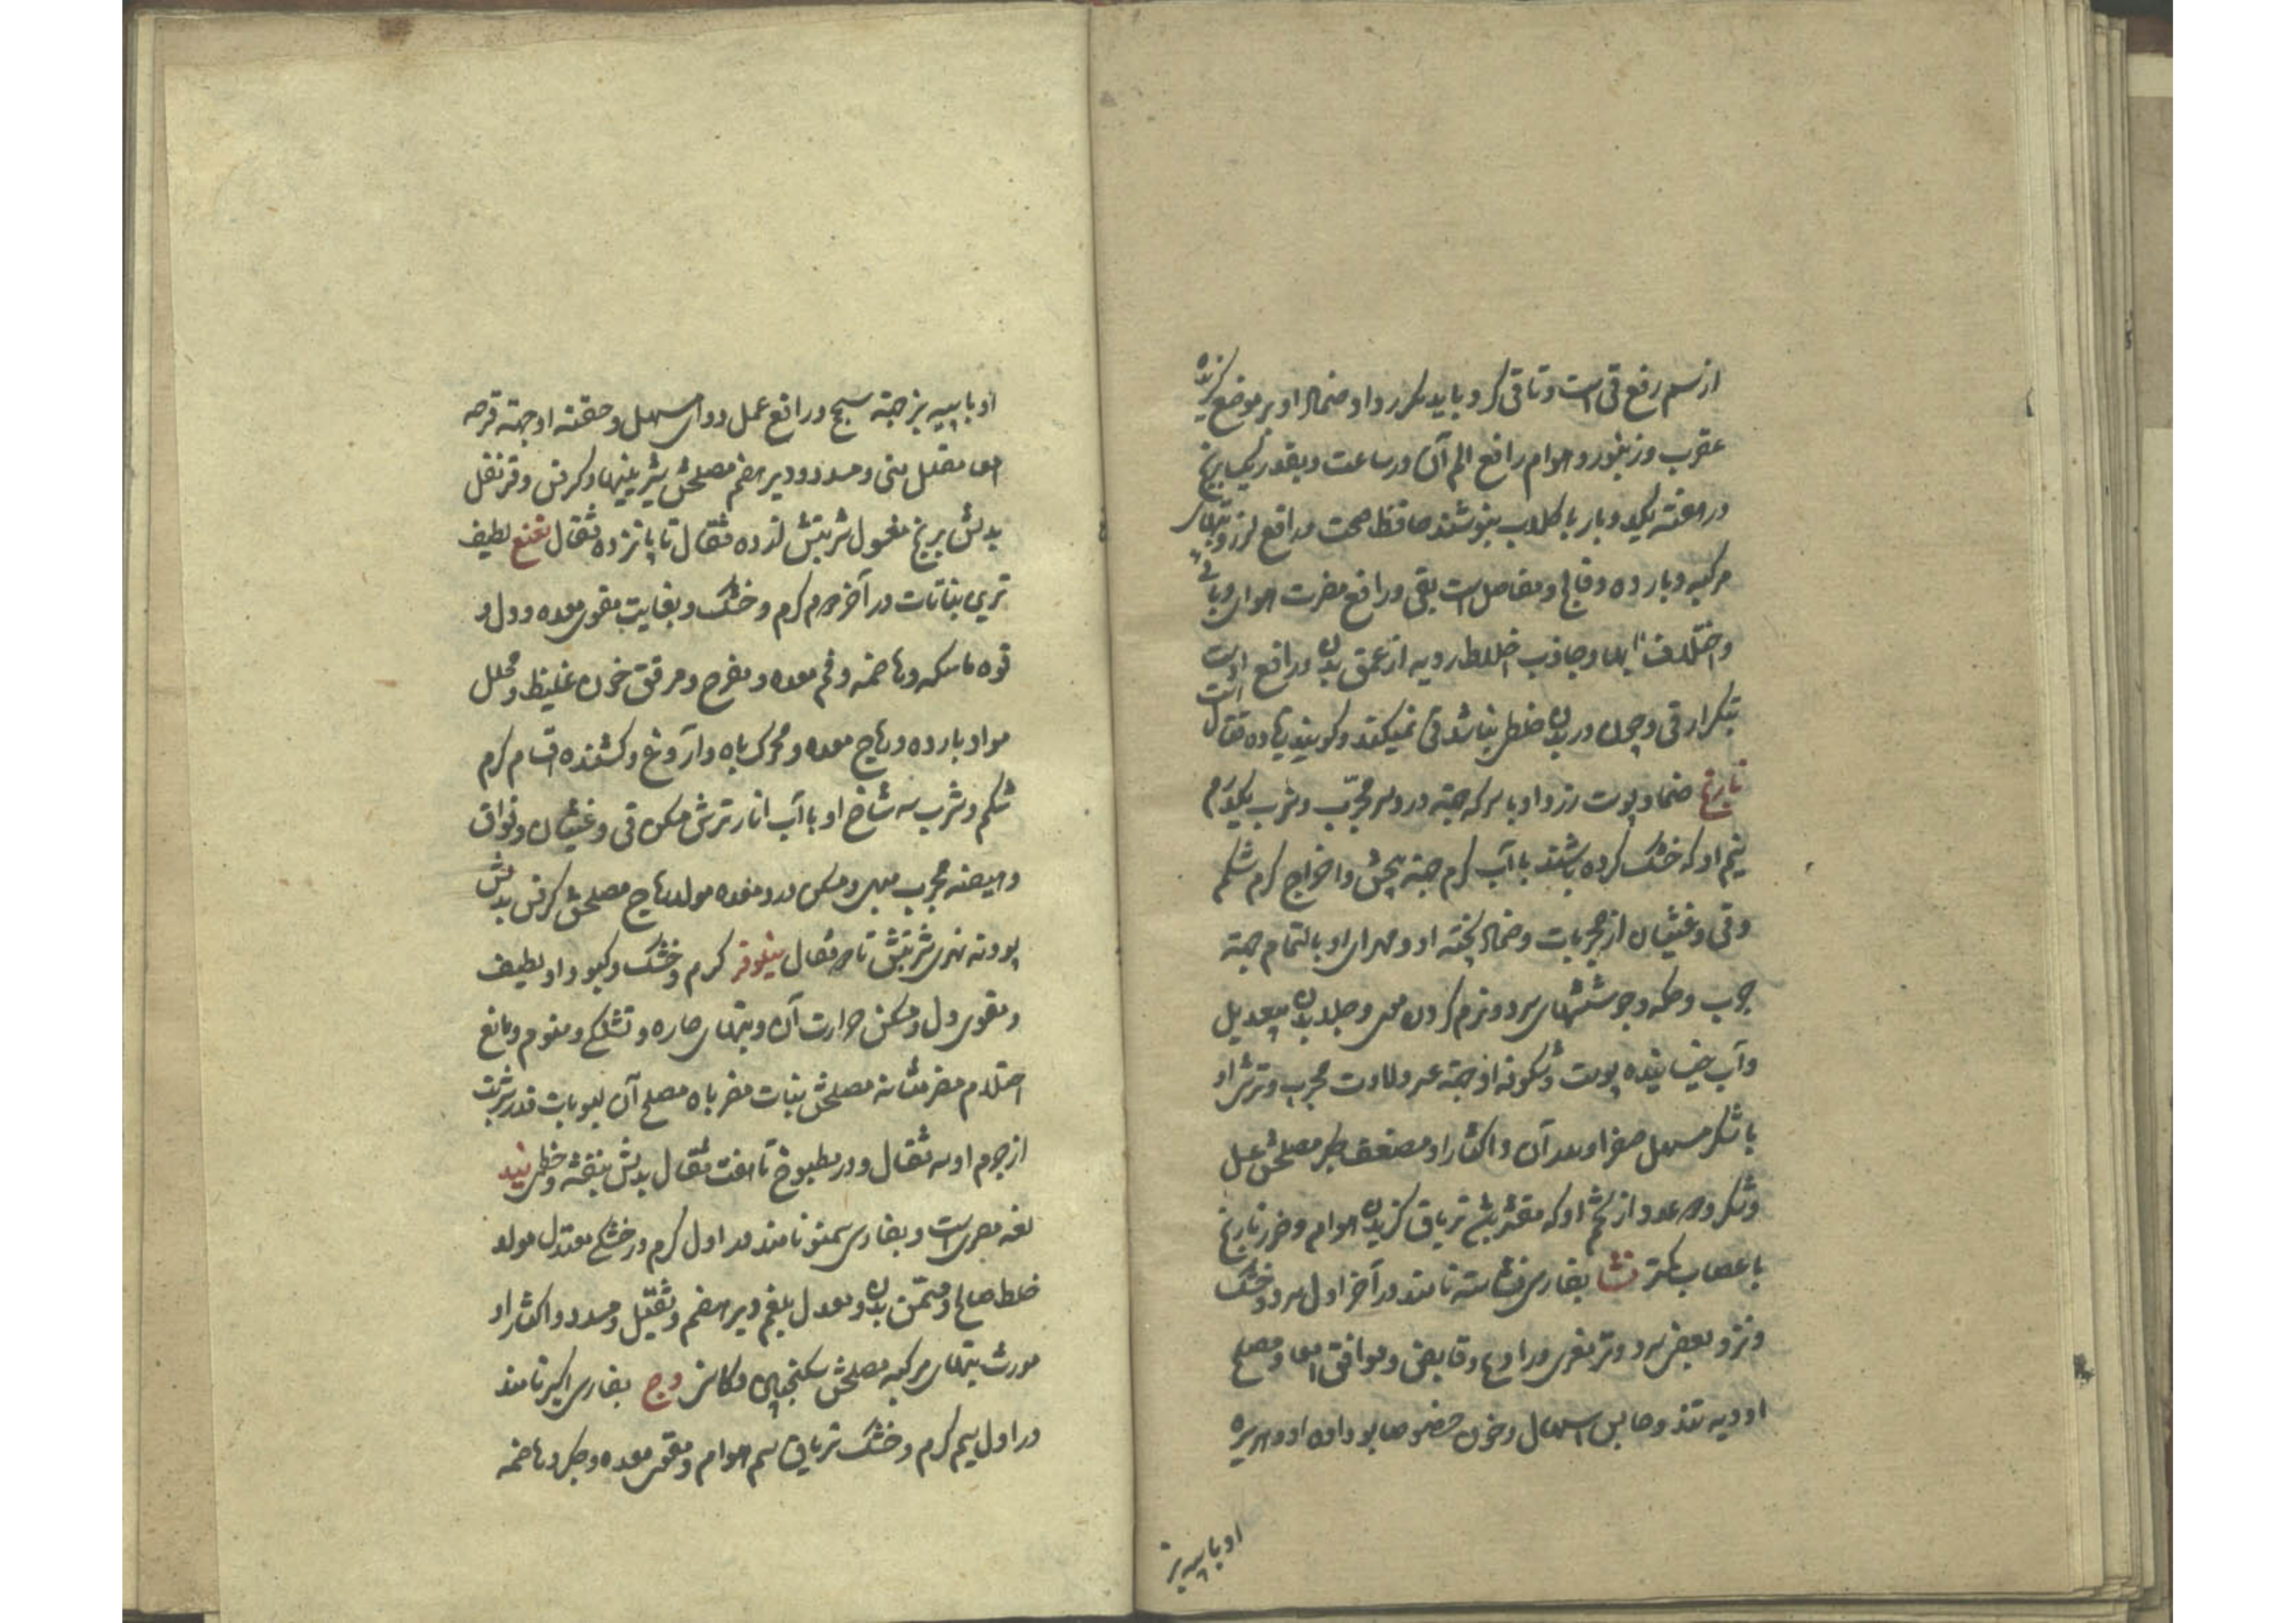 از سم رفع قی است و تا قی کرد باید مکرر داد و ضماد او بر موضع گزیده
عقرب و زنبور و هوام رافع الم آن در ساعت و بقدر یک برنج
در هفته یکدو بار با گلاب بنوشند حافظ صحت و رافع لرز و تبهای
مرکبه و بارده و فالج و مفاصل است بقی و رافع مضرت هوای وبائی
و اختلاف آبها و جاذب اخلاط ردیه از عمق بدن و رافع اوست
بتکرار قی و چون در بدن خلطی نباشد قی نمیکند و گویند تا ده مثقال است
نارنج ضماد پوست زرد او با سرکه جهته درد سر مجرّب و شرب یکدرم
نیم او که خشک کرده باشند با آب گرم جهته پیچش و اخراج کرم شکم
و قی و غثیان از مجربات و ضماد پخته او و مهرای او بالتمام جهته
جرب و حکه و جوششهای سرد و نرم کردن موی و جلد بدن بیعدیل
و آب خیسانیده پوست و شکوفه او جهته عسر ولادت مجرب و ترشی او
با شکر مسهل صفرا و بعد آن و اکثار او مضعف جگر مصلحش عسل
و شکر و دو عدد از تخم او که مقشر باشد تریاق گزیدن هوام و ضرر نارنج
باعصاب کمتر نشا بفارسی نشاسته نامند در آخر اول سرد و خشک
و نزد بعضی سرد و تر مغری و رادع و قابض و موافق امعا و مصلح
ادویه تند و حابس اسهال و خون خصوصا بو داده او و هریره
او با پیه بز
او با پیه بز جهته سحج و رافع عمل دوای مسهل و حقنه او جهته قرحه
امعا مقلل منی و مسدد و دیر هضم مصلحش شیرینیها و کرفس و قرنفل
بدلش برنج مغسول شربتش از ده مثقال تا پانزده مثقال نعنع لطیف
ترین نباتات در آخر دوم گرم و خشک و بغایت مقوی معده و دل و
قوه ماسکه و هاضمه و فم معده و مفرح و مرقق خون غلیظ و محلل
مواد بارده و ریاح معده و محرک باه و آروغ و کشنده اقسام کرم
شکم و شرب سه شاخ او با آب انار ترش مسکن قی و غثیان و فواق
و هیضه مجرب مبهی و مسکن درد معده مولد ریاح مصلحش کرفس بدلش
پودنه نهری شربتش تا دو مثقال نیلوفر گرم و خشک و کبود او لطیف
و مقوی دل و مسکن حرارت آن و تبهای حاره و تشنگی و منوم و مانع
احتلام مضر مثانه مصلحش نبات مضر باه مصلح آن لبوبات قدر شربت
از جرم او سه مثقال و در مطبوخ تا هفت مثقال بدلش بنفشه و خطمی نید
لغه مصری است و بفارسی سمنو نامند در اول گرم در خشکی معتدل مولد
خلط صالح و مسمن بدن و معدل بلغم دیر هضم و ثقیل و مسدد و اکثار او
مورث تبهای مرکبه مصلحش سکنجبین و کاسنی وج بفارسی اکیر نامند
در اول سیم گرم و خشک تریاق سم هوام و مقوی معده و جگر و هاضمه